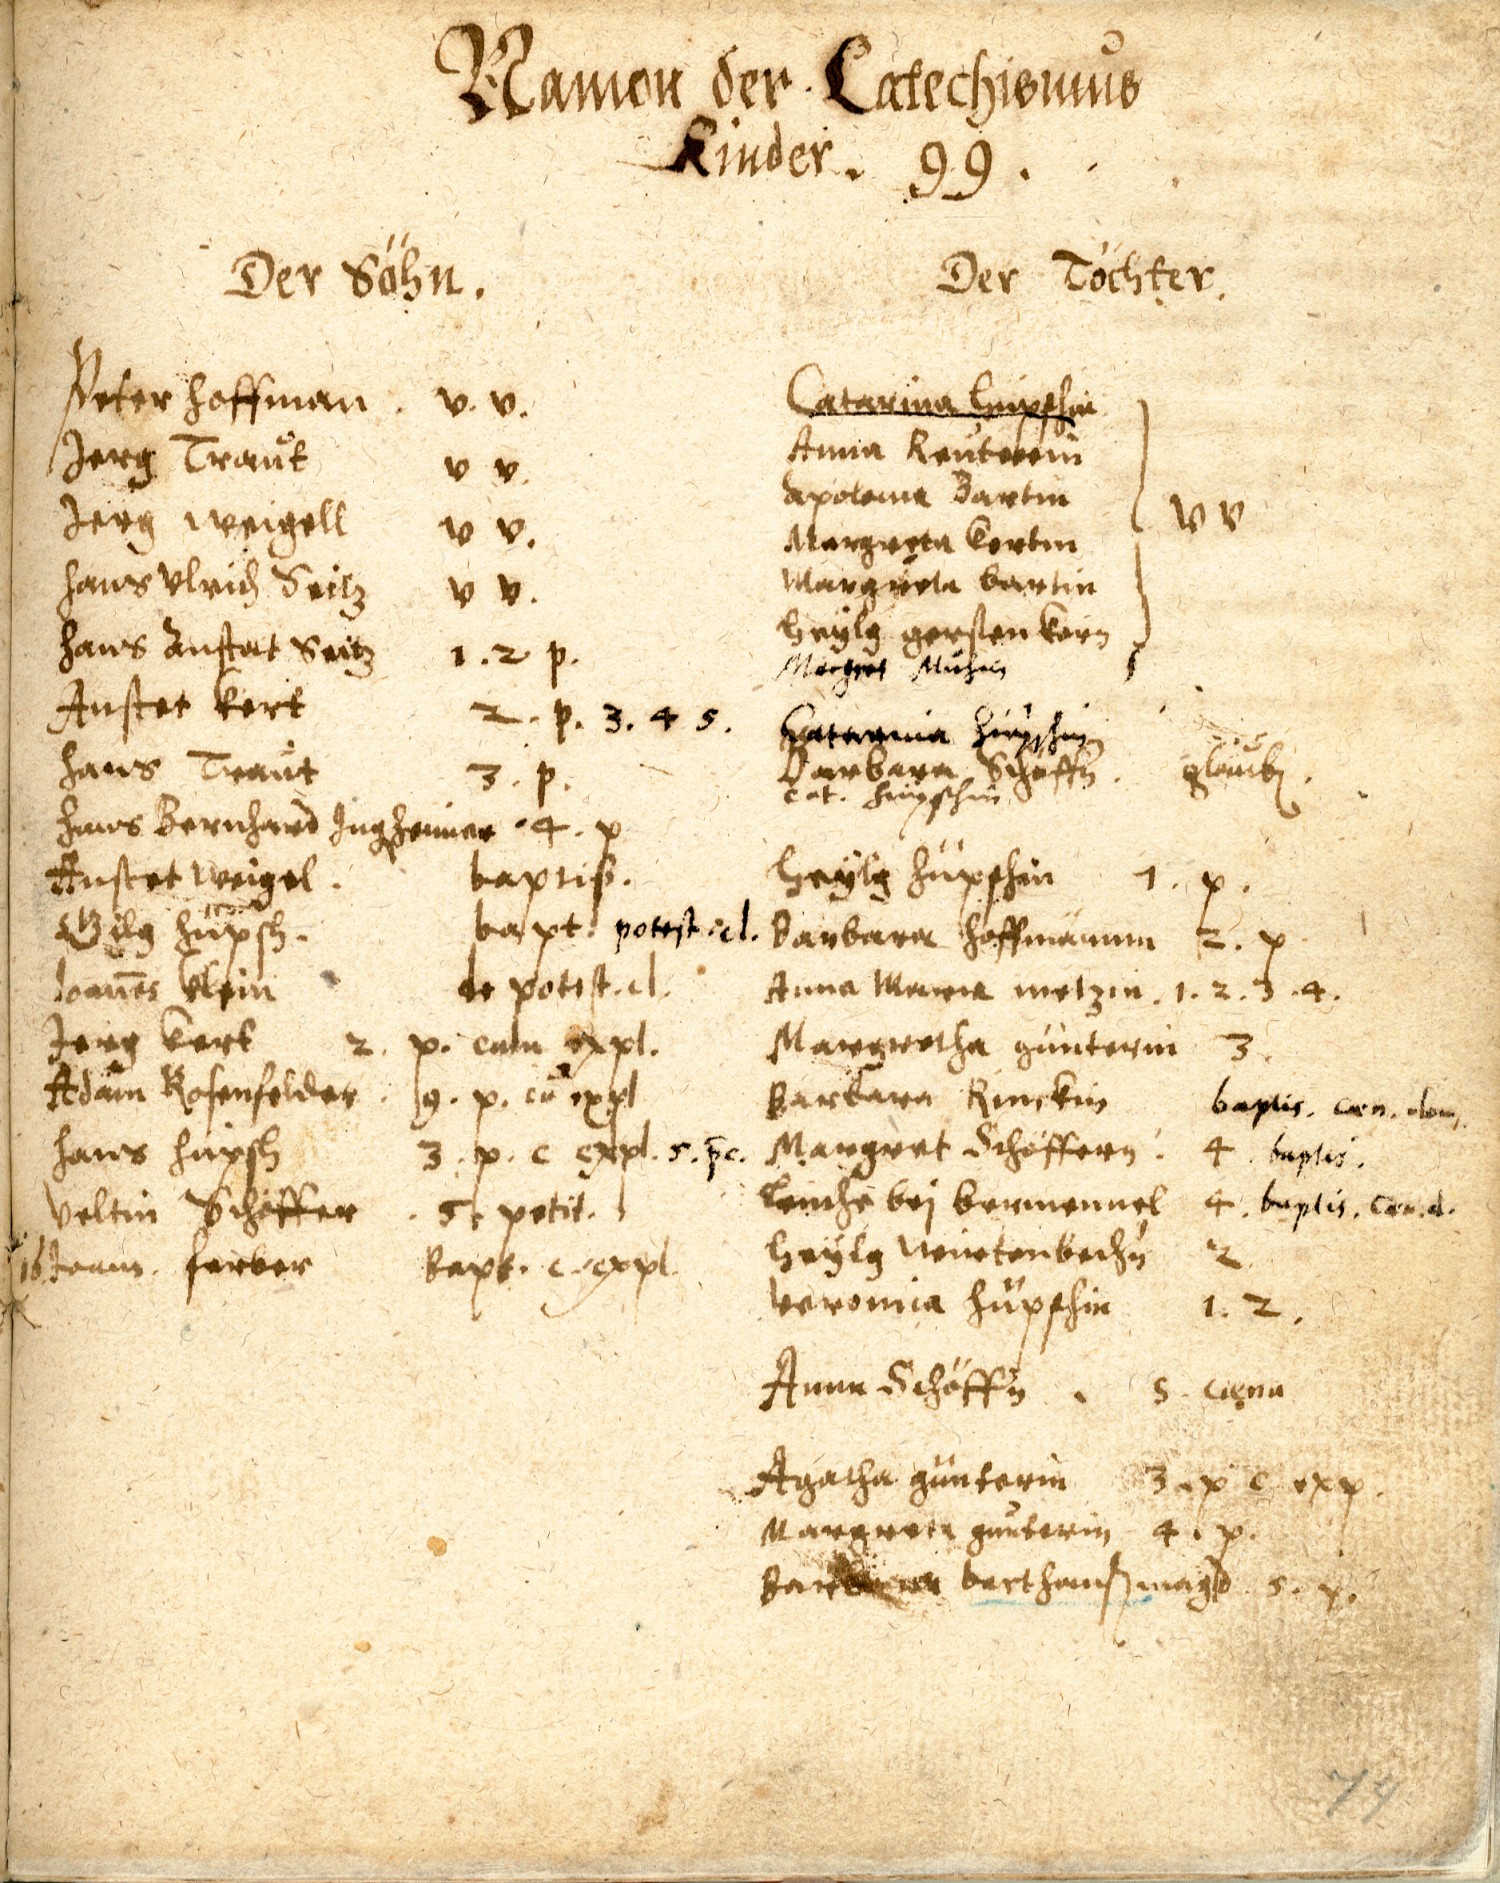 Namen der Catechismus
Kinder. 99.
Der Söhn.
Peter Hoffman. v. v.
Jerg Traut v v.
Jerg Weigell v v.
Hans Ulrich Seitz v v.
Hans Anstat Seitz 1. 2 p.
Anstet Kert 2. p. 3. 4 5.
Hans Traut 3. p.
Hans Bernhard Ingheimer 4. p
Anstet Weigel. baptis.
Gilg Hüpsh. bapt. potest. cl.
Joanes Klein de potest. cl.
Jerg Kert 2. p. cum expl.
Adam Rosenfelder. p. cu expl
Hans Hüpsh 3. p. c expl. 5. pc.
Veltin Schöffer. 5. petit.
16 Joann. Ferber bapt. c. expl.
Der Töchter.
Catarina Hüpshin
Anna Reuterin
Apolonia Bartin
Margreta Kertin
Margreta Bartin
Heylg Gerstenkorn
Margret
v v
Catarina Hüpshin
Barbara Schöffn. glaub.
Cat. Hüpschin
Heylg Hüpshin 1. p.
Barbara Hoffmännin 2. p
Anna Maria Metzin. 1. 2. 3. 4.
Margretha Günterin 3.
Barbara Rinckin baptis. cæn.
Margret Schöffern. 4. baptis.
bei 4. baptis. Cæn. d.
Heylg 2
Veronica Hüpshin 1. 2.
Anna Schöffn. 5. cæna
Agatha Günterin 3. p c exp.
Margreta Günterin 4. p.
magd. 5. p.
74